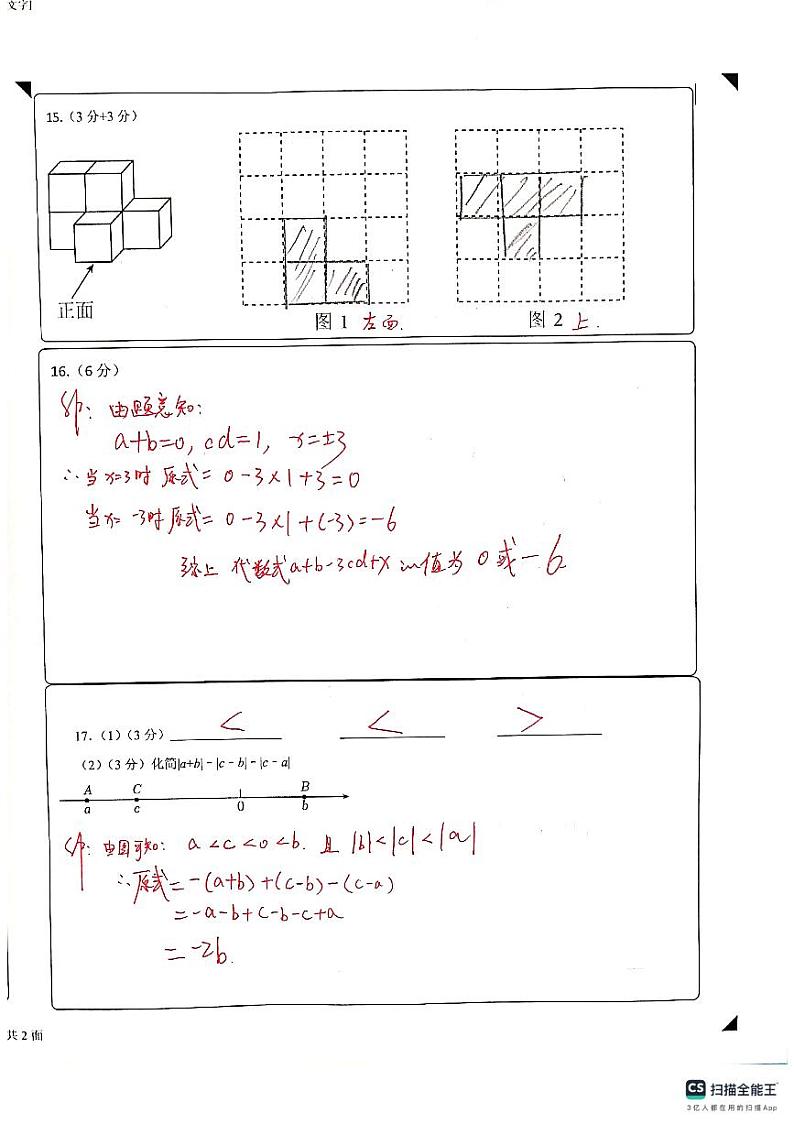 文字】
15.（3 分+3 分）
正面
图 1 左面.
图 2 上.
16.（6 分）
解：由题意知：
a+b=0, cd=1, x=±3
∴当x=3时 原式= 0-3×1+3=0
当x= -3时原式= 0-3×1+(-3)=-6
综上 代数式a+b-3cd+x的值为 0 或-6
17.（1）（3 分） < < >
（2）（3 分）化简|a+b|﹣|c﹣b|﹣|c﹣a|
A C B
a c 0 b
解：由图可知： a<c<0<b. 且 |b|<|c|<|a|
∴原式=-(a+b)+(c-b)-(c-a)
=-a-b+c-b-c+a
=-2b.
共 2 面
CS 扫描全能王
3亿人都在用的扫描App